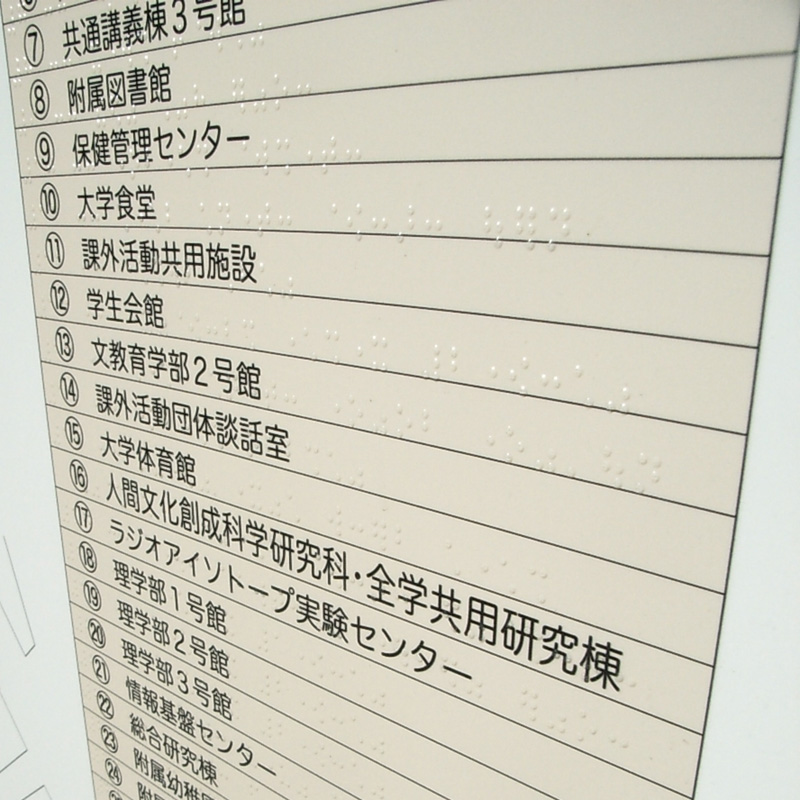 ⑦ 共通講義棟3号館
⑧ 附属図書館
⑨ 保健管理センター
⑩ 大学食堂
⑪ 課外活動共用施設
⑫ 学生会館
⑬ 文教育学部2号館
⑭ 課外活動団体談話室
⑮ 大学体育館
⑯ 人間文化創成科学研究科・全学共用研究棟
⑰ ラジオアイソトープ実験センター
⑱ 理学部1号館
⑲ 理学部2号館
⑳ 理学部3号館
㉑ 情報基盤センター
㉒ 総合研究棟
㉓ 附属幼稚園
㉔ 附属